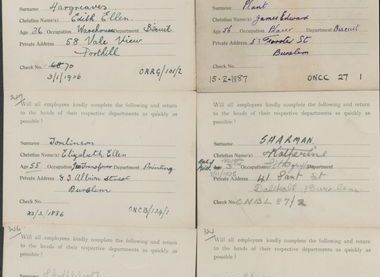 Surname Hargreaves
Christian Name(s) Edith Ellen
Age 26 Occupation Warehouse Department Biscuit
Private Address 58 Vale View
Porthill
Check No. 70
3/1/1906 ONRG/101/2
Surname Plant
Christian Name(s) James Edward
Age 56 Occupation Placer Department Biscuit
Private Address 57 St
Burslem
Check No.
15-2-1887 ONCC 27 1
Will all employees kindly complete the following and return
to the heads of their respective departments as quickly as
possible!
Surname Tomlinson
Christian Name(s) Elizabeth Ellen
Age 55 Occupation Transferer Department Printing
Private Address 8 Albion Street
Burslem
Check No.
22/2/1886 ONCB/129/1
Will all employees kindly complete the following and return
to the heads of their respective departments as quickly as
possible!
Surname SHARMAN
Christian Name(s) Katherine
Age Occupation Department
Private Address 41 St
Dalehall Burslem
Check No. CNBL 87/2
Will all employees kindly complete the following and return
to the heads of their respective departments as quickly as
possible!
Surname
Will all employees kindly complete the following and return
to the heads of their respective departments as quickly as
possible!